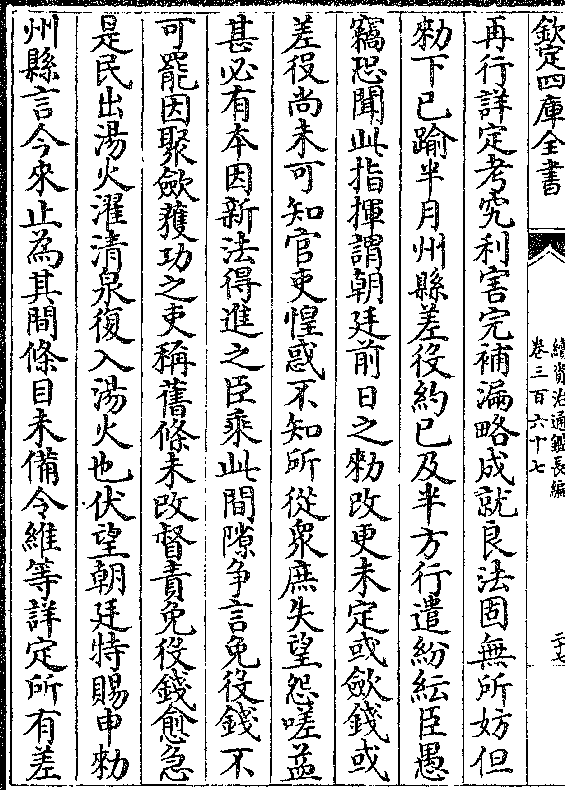 欽定四庫全書
續資治通鑑長編
卷三百六十七
再行詳定考究利害完補漏略成就良法固無所妨但
勑下已踰半月州縣差役約已及半方行遣紛紜臣愚
竊恐聞此指揮謂朝廷前日之勑改更未定或歛錢或
差役尚未可知官吏惶惑不知所從衆庶失望怨嗟益
甚必有本因新法得進之臣乘此間隙争言免役錢不
可罷因聚歛獲功之吏稱舊條未改督責免役錢愈急
是民出湯火濯清泉復入湯火也伏望朝廷特賜申勑
州縣言今來止為其間條目未備令維等詳定所有差